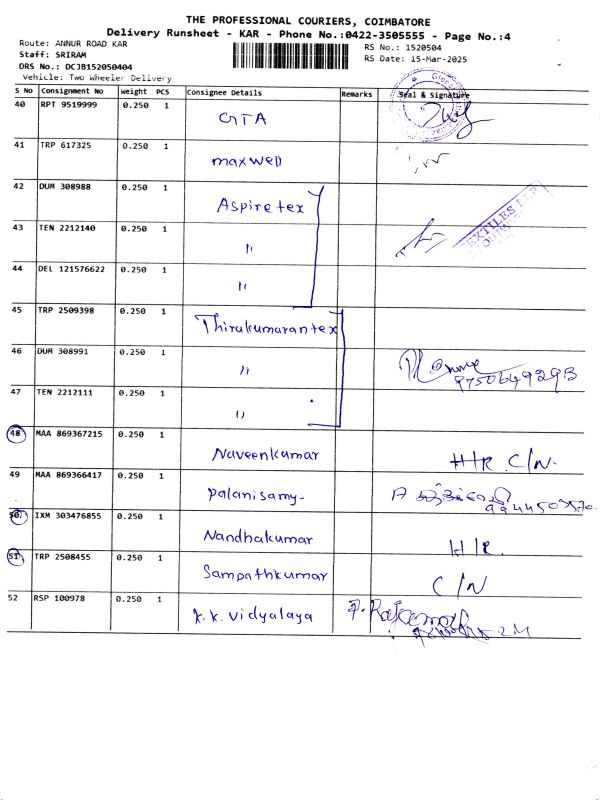 THE PROFESSIONAL COURIERS, COIMBATORE
Delivery Runsheet - KAR - Phone No.:0422-3505555 - Page No.:4
Route: ANNUR ROAD KAR
RS No.: 1520504
Staff: SRIRAM
RS Date: 15-Mar-2025
DRS No.: DCJB152050404
Vehicle: Two Wheeler Delivery
S No Consignment No Weight PCS Consignee Details Remarks Seal & Signature
40 RPT 9519999 0.250 1 GTA
41 TRP 617325 0.250 1 maxwell
42 DUM 308988 0.250 1 Aspire tex
43 TEN 2212140 0.250 1 "
TEXTILES LLP
44 DEL 121576622 0.250 1 "
45 TRP 2509398 0.250 1 Thirukumaran tex
46 DUM 308991 0.250 1 "
9750649293
47 TEN 2212111 0.250 1 "
48 MAA 869367215 0.250 1 Naveenkumar H/R C/N.
49 MAA 869366417 0.250 1 Palanisamy-
50 IXM 303476855 0.250 1 Nandhakumar H/R.
51 TRP 2508455 0.250 1 Sampathkumar C/N
52 RSP 100978 0.250 1 K.K. Vidyalaya